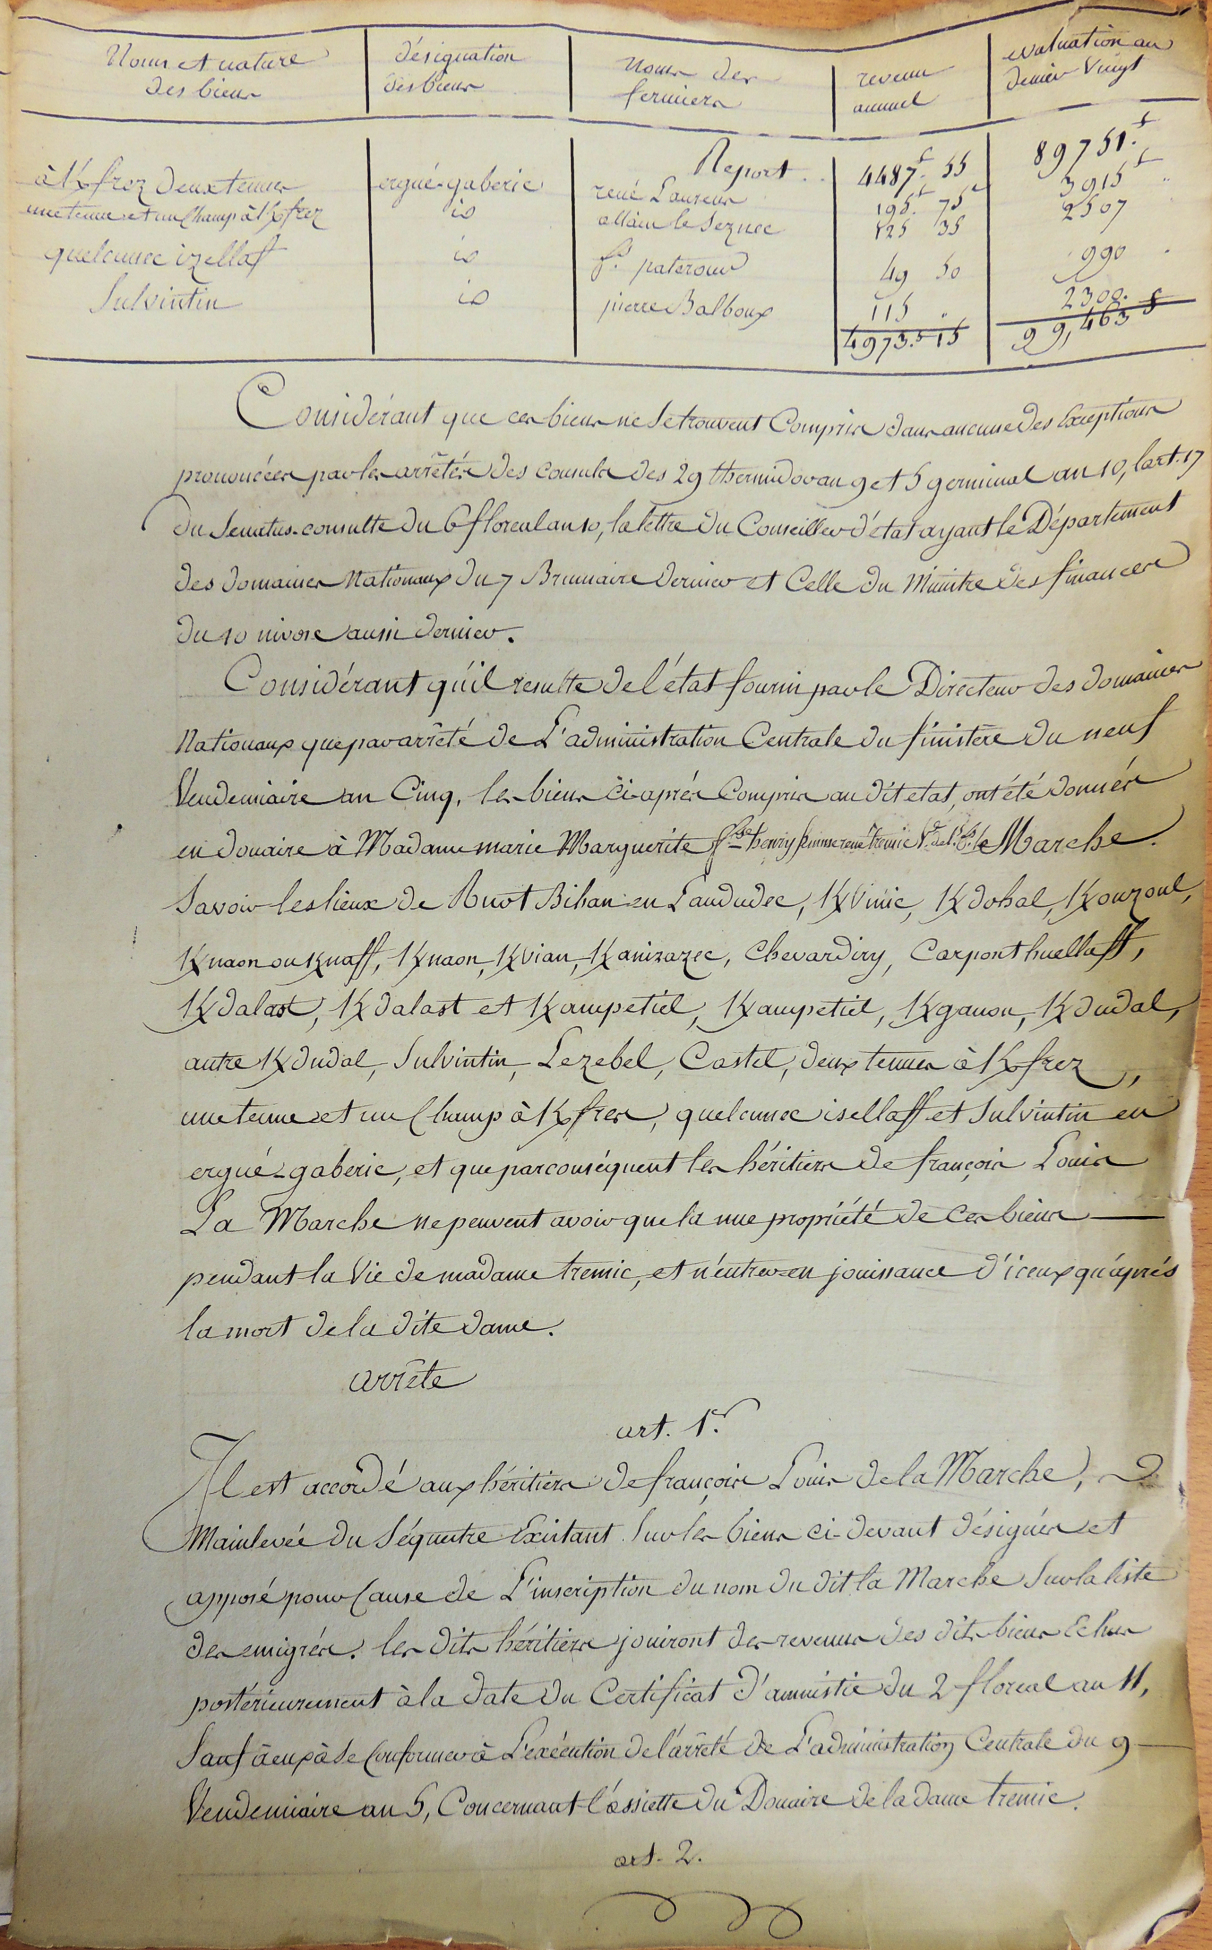 Noms et nature des biens | désignation des biens | Noms des fermiers | revenu annuel | evaluation au denier Vingt
Report . . 4487.f 55 89751.f
à K/frez deux tenues ergué-gaberic rené Laurens 195.f 75c 3915f "
une tenue et un Champ à K/frez id allain le Seznec 125 35 2507
quelennec izellaff id f.s paterour 49 50 990 "
Sulvintin id pierre Balboux 115 . 2300. s
4973.f 15 99,463
Considérant que ces biens ne Se trouvent Compris dans aucune des Exceptions
prononcées par les arrêtés des consuls des 29 thermidor an 9 et 5 germinal an 10, l'art. 17
du Senatus-consulte du 6 floreal an 10, la lettre du Conseiller d'état ayant le Département
des domaines Nationaux du 7 Brumaire dernier et Celle du Ministre des finances
du 10 nivose aussi dernier.
Considérant qu'il resulte de l'état fourni par le Directeur des domaines
Nationaux que par arrêté de L'administration Centrale du finistère du neuf
Vendemiaire an Cinq, les biens ci-après Compris au dit etat, ont été donnés
en douaire à Madame marie Marguerite f.se henry trémic V.e de la Marche.
Savoir les lieux de Ruot Bihan en Landudec, K/Vinic, K/dohal, K/ourzoul,
K/naon ou K/naff, K/naon, K/vian, K/anizazec, Chevardiry, Carpont huellaff,
K/dalast, K/dalast et K/ampetiel, K/ampetiel, K/ganou, K/dudal,
autre K/dudal, Sulvintin, Lezebel, Castel, deux tenues à K/frez,
une tenue et un Champ à K/fres, quelennec isellaff et Sulvintin en
ergué-gaberic, et que par conséquent les héritiers de françois Louis
La Marche ne peuvent avoir que la nue propriété de Ces biens
pendant la Vie de madame tremic, et n'entrer en jouissance d'iceux qu'après
la mort de la dite dame.
arrête
art. 1.er
Il est accordé aux héritiers de françois Louis de la Marche,
Mainlevée du Séquestre Existant Sur les biens ci-devant désignés et
apposé pour Cause de L'inscription du nom du dit la Marche Sur la liste
des emigrés. les dits héritiers jouiront des revenus des dits biens Echus
postérieurement à la date du Certificat d'amnistie du 2 floreal an 11,
Sauf à eux à Se Conformer à L'exécution de l'arrêté de L'administration Centrale du 9
Vendemiaire an 5, Concernant l'assiette du Douaire de la dame tremic.
art. 2.